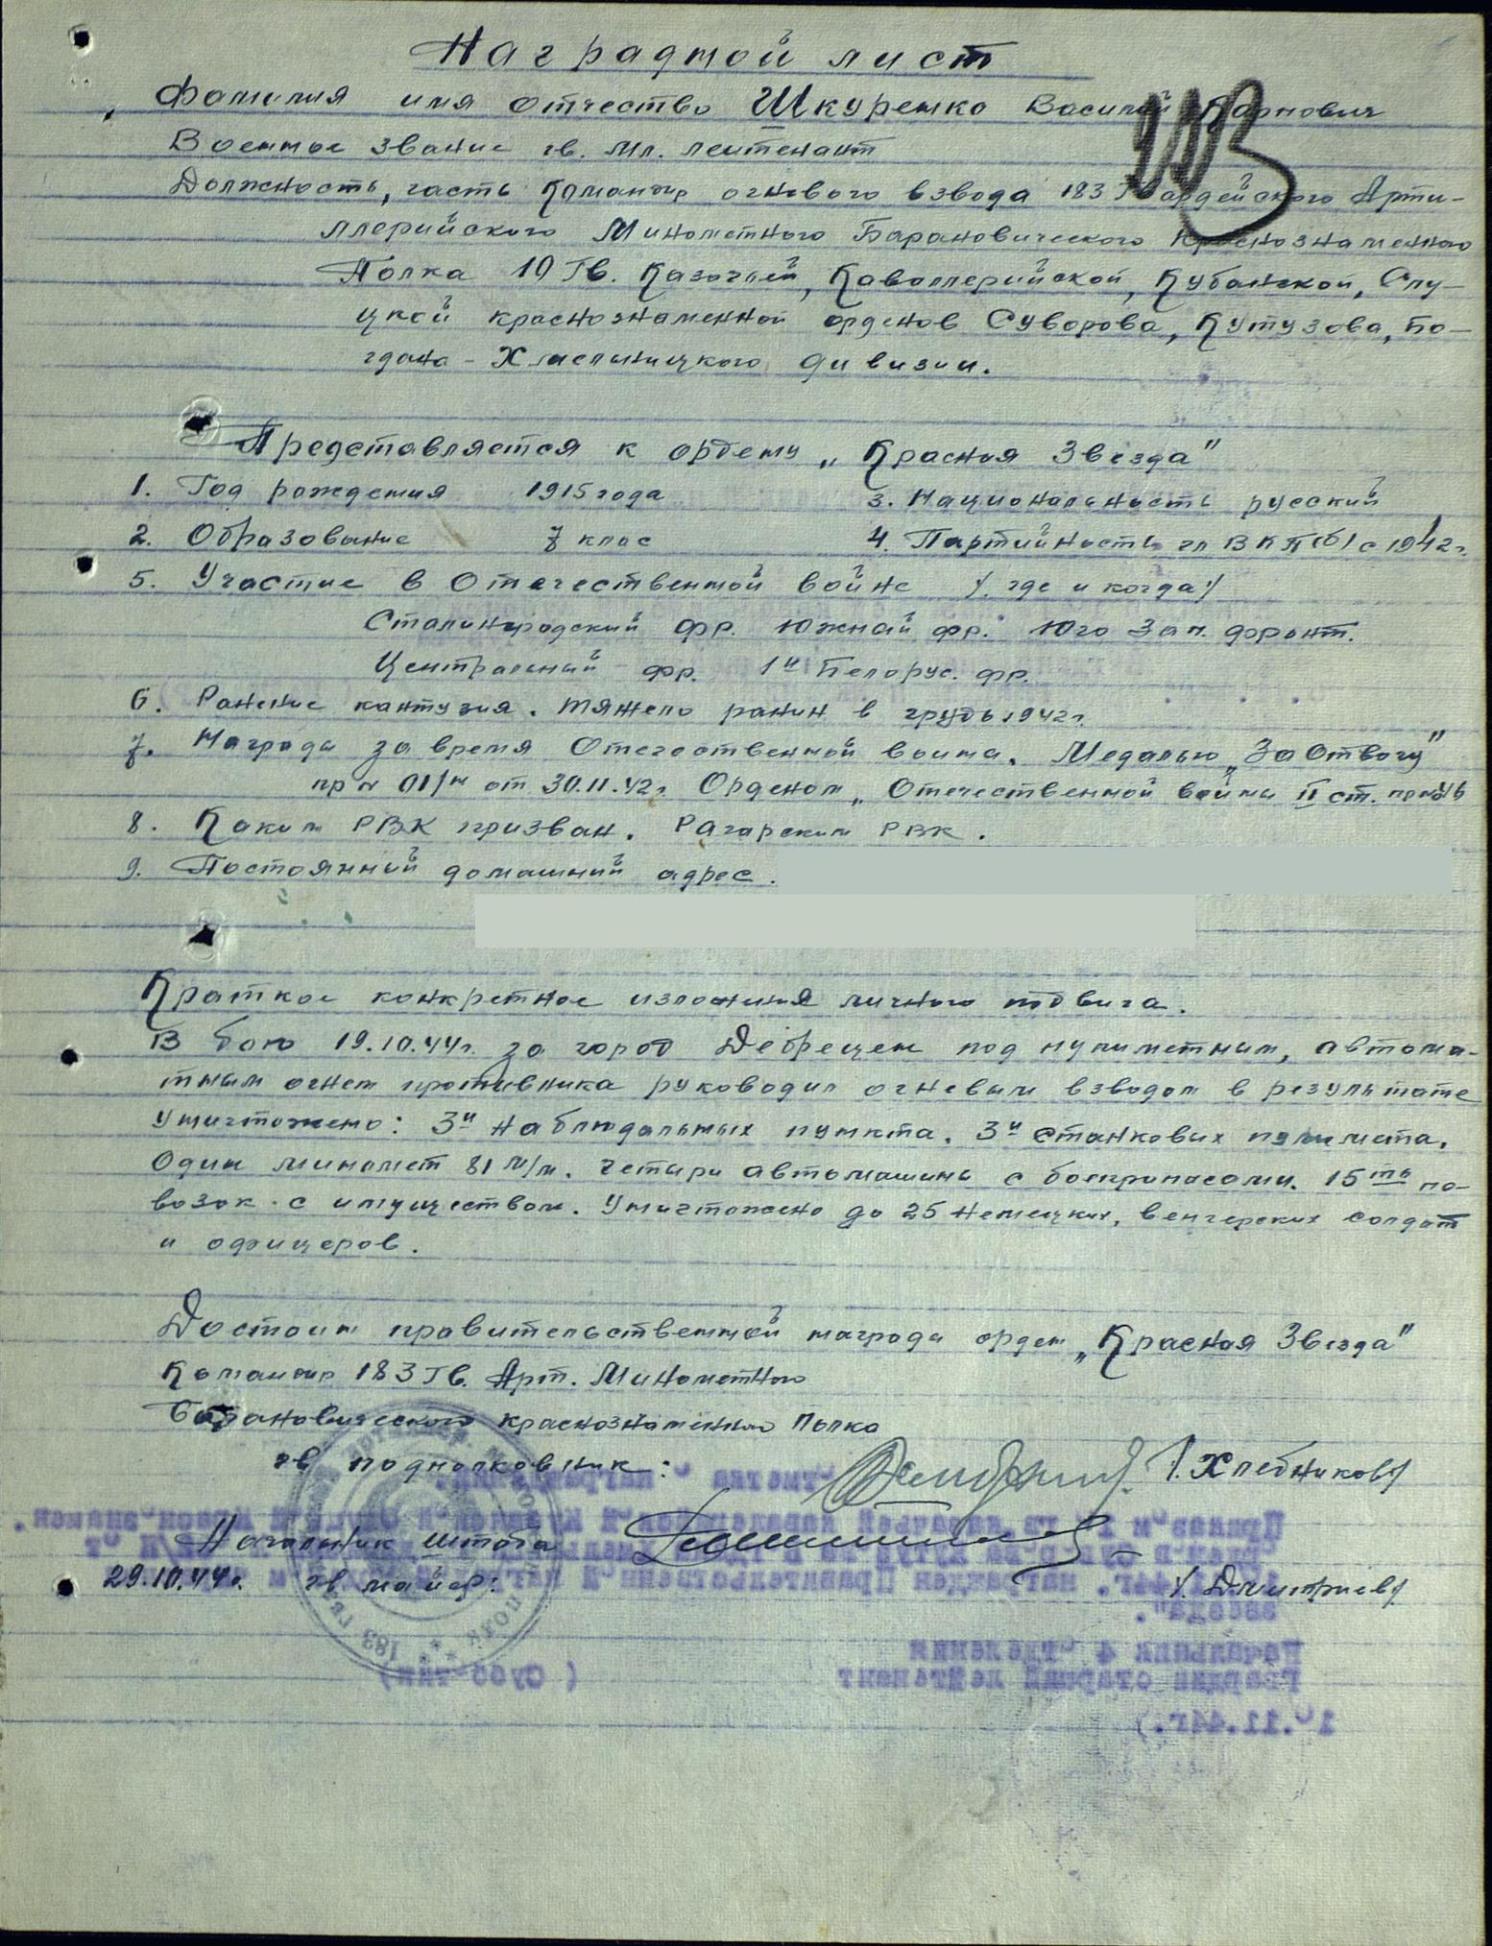 Наградной лист
Фамилия имя отчество Шкуренко Василий Карпович
Военное звание гв. мл. лейтенант
Должность, часть Командир огневого взвода 183 Гвардейского Арти-
ллерийского Минометного Барановичского Краснознаменного
Полка 10 Гв. Казачьей, Каваллерийской, Кубанской, Слу-
цкой краснознаменной орденов Суворова, Кутузова, Бо-
гдана-Хмельницкого дивизии.
Представляется к ордену „Красная Звезда"
1. Год рождения 1915 года 3. Национальность русский
2. Образование 7 клас 4. Партийность чл ВКП(б) с 1942 г.
5. Участие в Отечественной войне /. где и когда/
Сталинградский фр. Южный фр. Юго Зап. фронт.
Центральный фр. 1й Белорус. фр.
6. Ранение кантузия. тяжело ранин в грудь 1942 г.
7. Награды за время Отечественной воины. Медалью „За Отвагу"
пр № 01/н от 30.11.42 г. Орденом „Отечественной войны II ст.
8. Каким РВК призван. РВК.
9. Постоянный домашний адрес.
Краткое конкретное изложения личного подвига.
В бою 19.10.44 г. за город Дебрецен под пулиметным, автома-
тным огнем противника руководил огневым взводом в результате
уничтожено: 3и наблюдальных пункта. 3и станковых пулимета.
Один миномет 81 м/м. четыри автомашины с боеприпасоми. 15ть по-
возок с имуществом. Уничтожено до 25 немецких, венгерских солдат
и офицеров.
Достоин правительственной награды орден „Красная Звезда"
Командир 183 Гв. Арт. Минометного
Барановического краснознаменного Полка
гв подполковник: /. Хлебников/
Начальник штаба
29.10.44 г. гв. майор: /. Дмитриев/
183 ПОЛК
Начальник 4 отделения
Гвардии старший лейтенант
10.11.44г.)